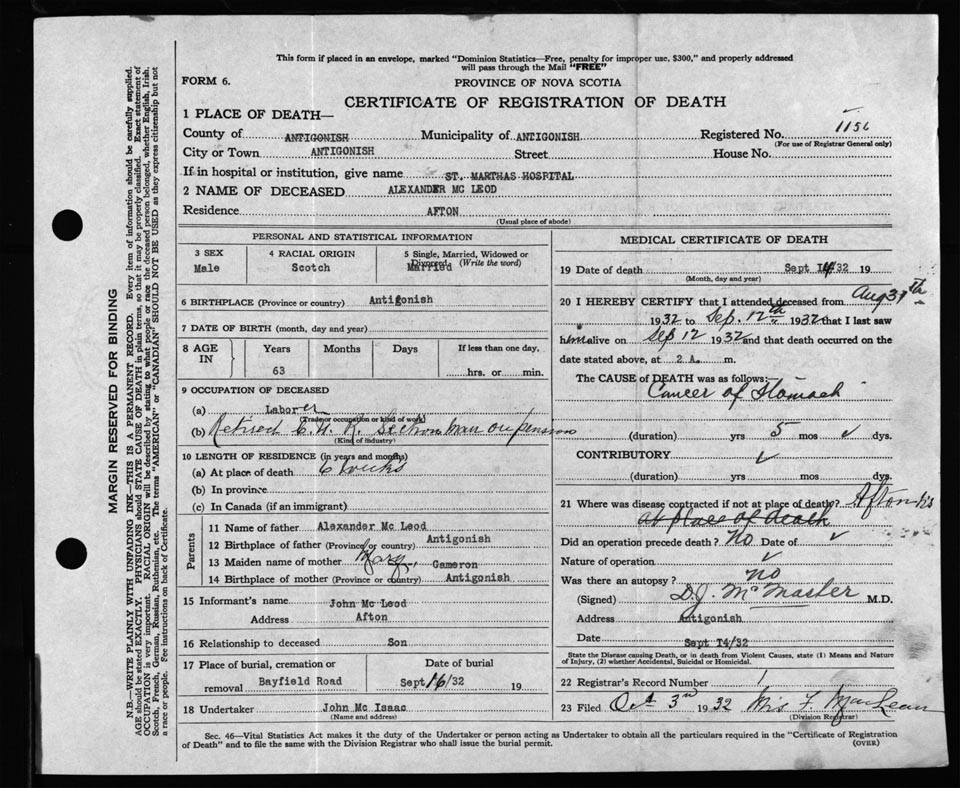 This form if placed in an envelope, marked "Dominion Statistics—Free, penalty for improper use, $300," and properly addressed
will pass through the Mail "FREE"
FORM 6.
PROVINCE OF NOVA SCOTIA
CERTIFICATE OF REGISTRATION OF DEATH
1 PLACE OF DEATH—
County of ANTIGONISH Municipality of ANTIGONISH Registered No. 1156
(For use of Registrar General only)
City or Town ANTIGONISH Street House No.
If in hospital or institution, give name ST. MARTHAS HOSPITAL
2 NAME OF DECEASED ALEXANDER MC LEOD
Residence AFTON
(Usual place of abode)
PERSONAL AND STATISTICAL INFORMATION
3 SEX 4 RACIAL ORIGIN 5 Single, Married, Widowed or
Divorced (Write the word)
Male Scotch Married
6 BIRTHPLACE (Province or country) Antigonish
7 DATE OF BIRTH (month, day and year)
8 AGE IN Years Months Days If less than one day,
63 hrs. or min.
9 OCCUPATION OF DECEASED
(a) Laborer
(Trade or occupation or kind of work)
(b) Retired C.N.R. Section man on pension
(Kind of industry)
10 LENGTH OF RESIDENCE (in years and months)
(a) At place of death 6 weeks
(b) In province
(c) In Canada (if an immigrant)
Parents
11 Name of father Alexander Mc Leod
12 Birthplace of father (Province or country) Antigonish
13 Maiden name of mother Mary Cameron
14 Birthplace of mother (Province or country) Antigonish
15 Informant's name John Mc Leod
Address Afton
16 Relationship to deceased Son
17 Place of burial, cremation or Date of burial
removal Bayfield Road Sept 16/32 19
18 Undertaker John Mc Isaac
(Name and address)
MEDICAL CERTIFICATE OF DEATH
19 Date of death Sept 14/32 19
(Month, day and year)
20 I HEREBY CERTIFY that I attended deceased from Aug 31th
1932 to Sep. 12th 1932 that I last saw
him alive on Sep 12 1932 and that death occurred on the
date stated above, at 2 A. m.
The CAUSE of DEATH was as follows:
Cancer of Stomach
(duration) yrs 5 mos ✓ dys.
CONTRIBUTORY ✓
(duration) yrs mos dys.
21 Where was disease contracted if not at place of death? Afton
at place of death
Did an operation precede death? No Date of ✓
Nature of operation ✓
Was there an autopsy? No
(Signed) D.J. McMaster M.D.
Address Antigonish
Date Sept 14/32
State the Disease causing Death, or in death from Violent Causes, state (1) Means and Nature
of Injury, (2) whether Accidental, Suicidal or Homicidal.
22 Registrar's Record Number 1
23 Filed Oct 3rd 1932 Mrs F. MacLean
(Division Registrar)
Sec. 46—Vital Statistics Act makes it the duty of the Undertaker or person acting as Undertaker to obtain all the particulars required in the "Certificate of Registration
of Death" and to file the same with the Division Registrar who shall issue the burial permit.
(OVER)
MARGIN RESERVED FOR BINDING
N.B.—WRITE PLAINLY WITH UNFADING INK—THIS IS A PERMANENT RECORD. Every item of information should be carefully supplied.
AGE should be stated EXACTLY. PHYSICIANS should STATE CAUSE OF DEATH in plain terms, so that it may be properly classified. Exact statement of
OCCUPATION is very important. RACIAL ORIGIN will be described by stating to what people or race the deceased person belonged, whether English, Irish,
Scotch, French, German, Russian, Ruthenian, etc. The terms "AMERICAN" or "CANADIAN" SHOULD NOT BE USED as they express citizenship but not
a race or people. Fee instructions on back of Certificate.